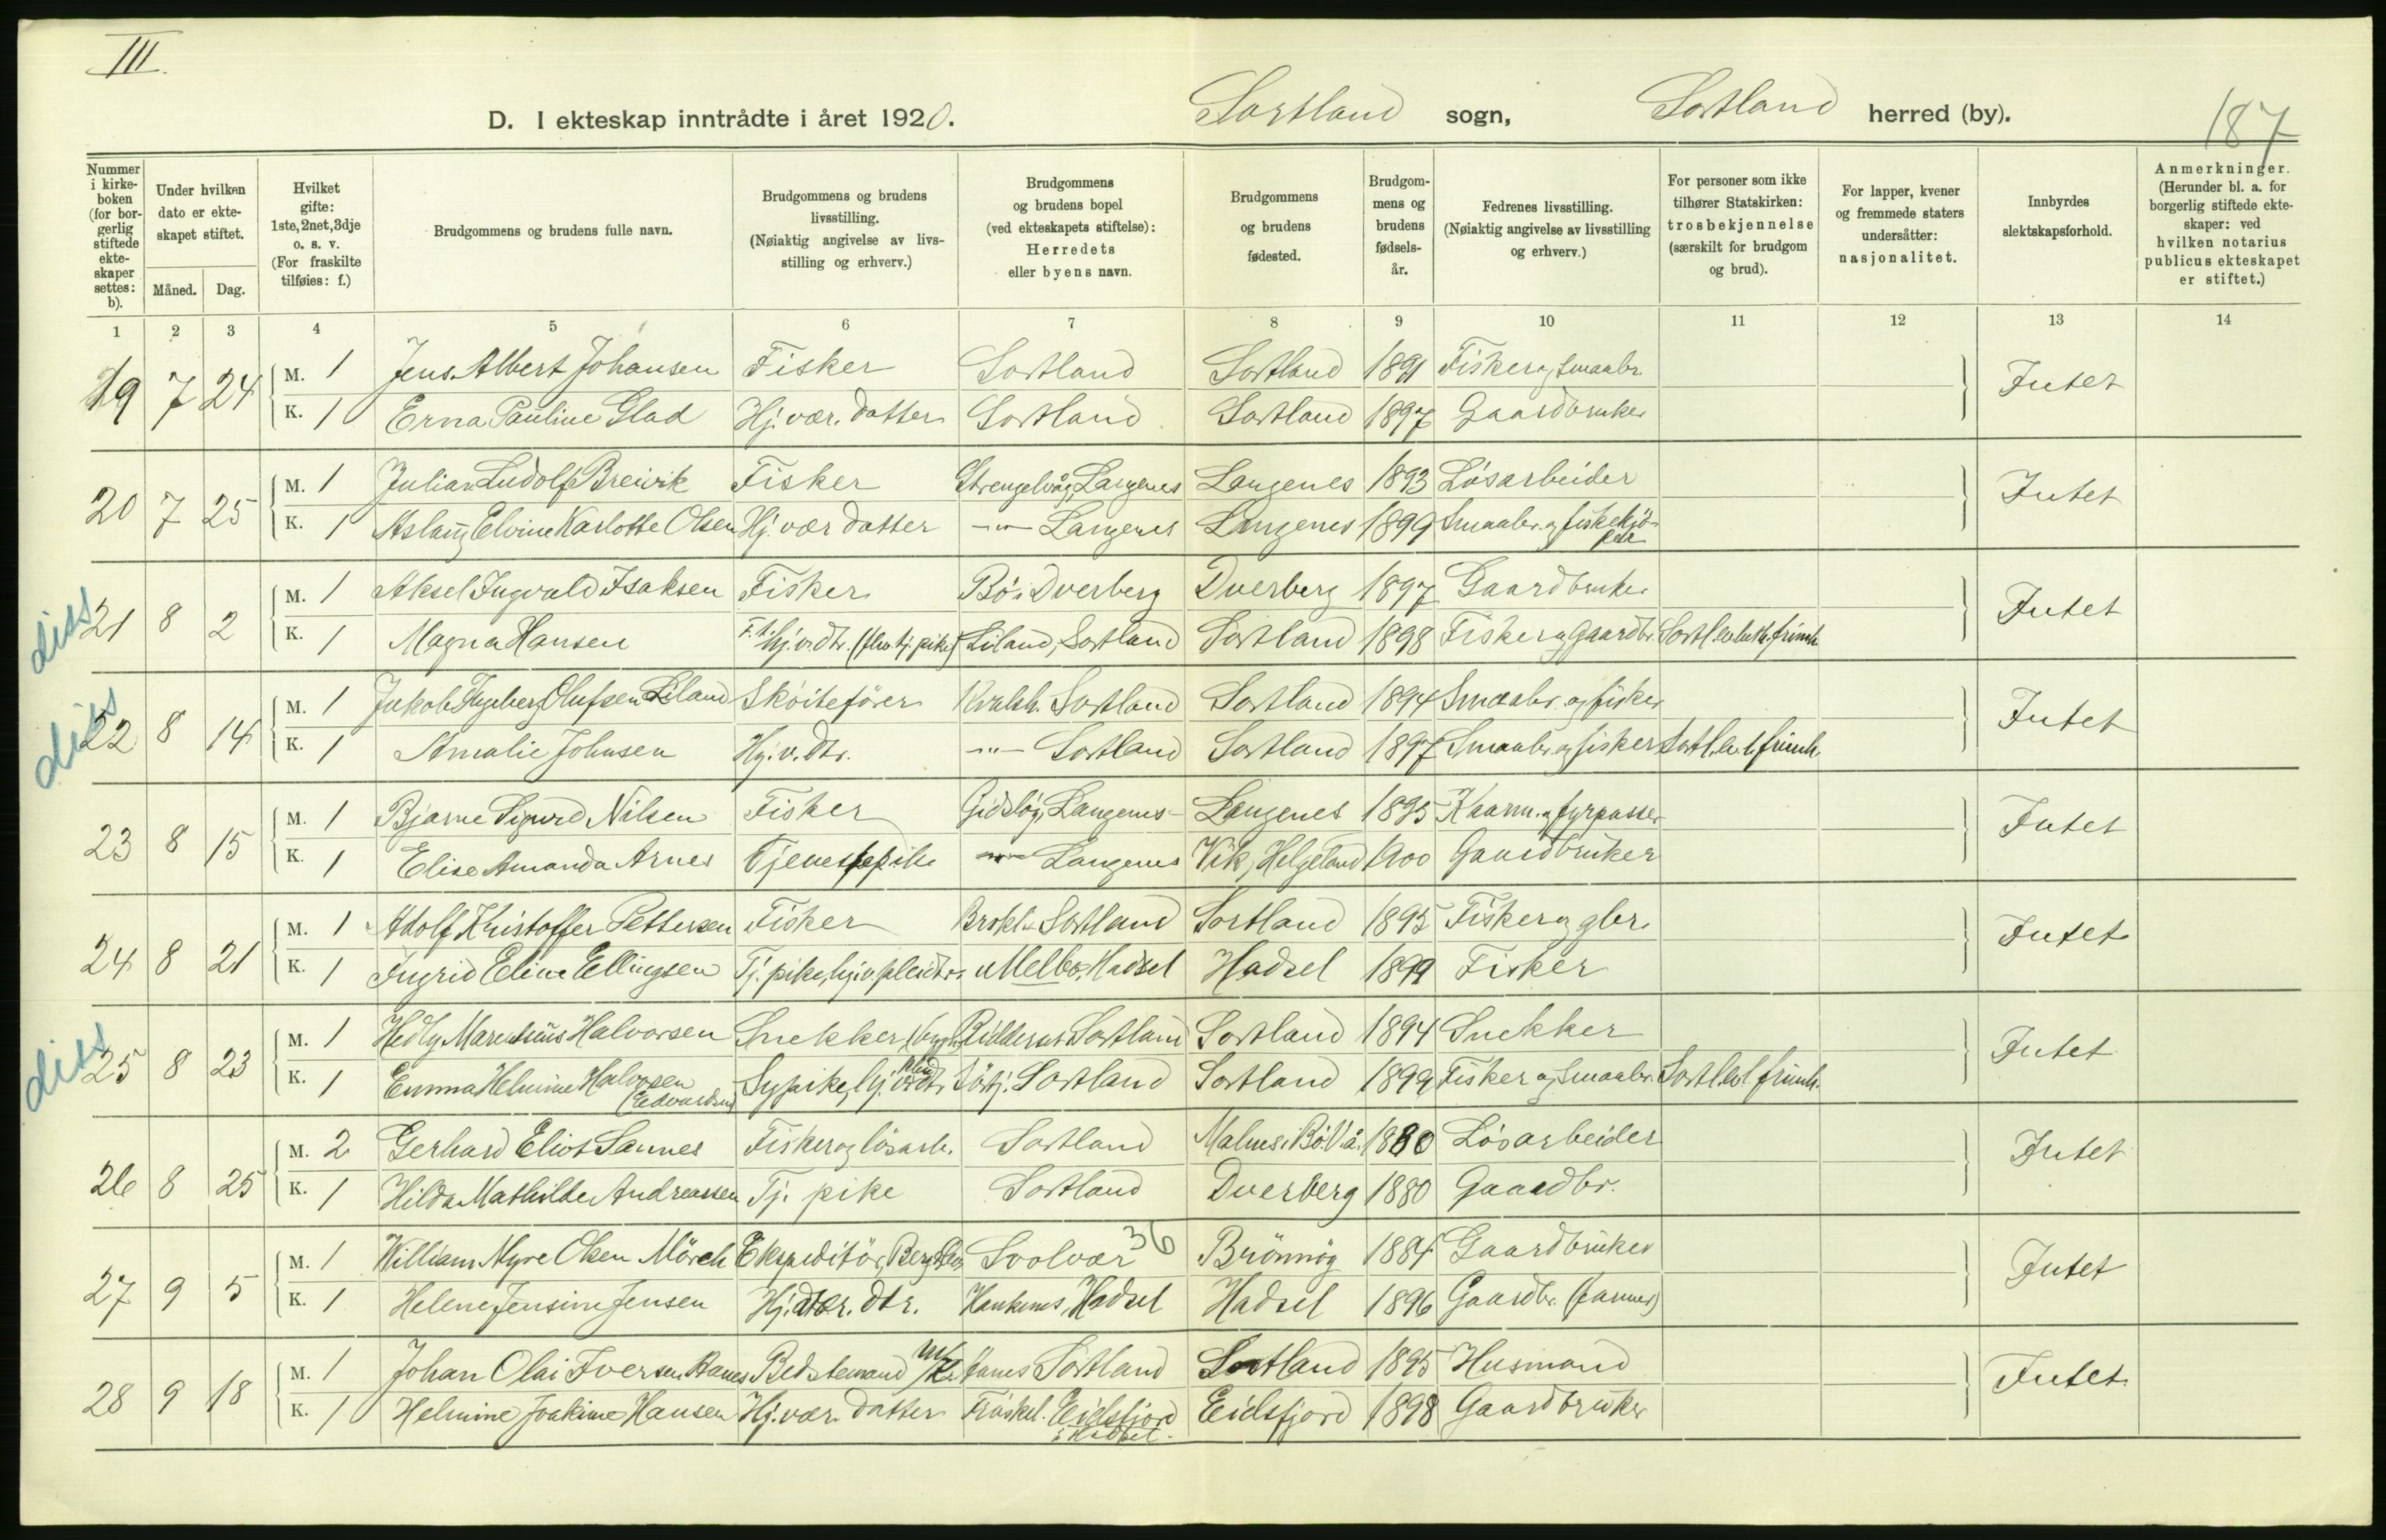 III.
D. I ekteskap inntrådte i året 1920. Sortland sogn, Sortland herred (by). 187
Nummer i kirkeboken (for borgerlig stiftede ekteskaper settes: b).
Under hvilken dato er ekteskapet stiftet.
Måned. Dag.
Hvilket gifte: 1ste, 2net, 3dje o. s. v. (For fraskilte tilføies: f.)
Brudgommens og brudens fulle navn.
Brudgommens og brudens livsstilling. (Nøiaktig angivelse av livsstilling og erhverv.)
Brudgommens og brudens bopel (ved ekteskapets stiftelse): Herredets eller byens navn.
Brudgommens og brudens fødested.
Brudgommens og brudens fødselsår.
Fedrenes livsstilling. (Nøiaktig angivelse av livsstilling og erhverv.)
For personer som ikke tilhører Statskirken: trosbekjennelse (særskilt for brudgom og brud).
For lapper, kvener og fremmede staters undersåtter: nasjonalitet.
Innbyrdes slektskapsforhold.
Anmerkninger. (Herunder bl. a. for borgerlig stiftede ekteskaper: ved hvilken notarius publicus ekteskapet er stiftet.)
1 2 3 4 5 6 7 8 9 10 11 12 13 14
19 7 24 M. 1 Jens Albert Johansen Fisker Sortland Sortland 1891 Fisker og smaabr. Intet
K. 1 Erna Pauline Glad Hj. vær. datter Sortland Sortland 1897 Gaardbruker
20 7 25 M. 1 Julian Ludolf Breivik Fisker Strengelvåg, Langenes Langenes 1893 Løsarbeider Intet
K. 1 Aslaug Elvine Karlotte Olsen Hj. vær datter -"- Langenes Langenes 1899 Smaabr. og fiskekjø-
per
diss 21 8 2 M. 1 Aksel Ingvald Isaksen Fisker Bø i Dverberg Dverberg 1897 Gaardbruker Intet
K. 1 Magna Hansen hj. v. dtr. Liland, Sortland Sortland 1898 Fisker og Gaardbr. Sortl. ev. luth. frimh.
diss 22 8 14 M. 1 Jakob Ingeberg Olufsen Liland Skøitefører Kvalsh. Sortland Sortland 1894 Smaabr. og fisker Intet
K. 1 Amalie Johnsen Hj. v. dtr. -"- Sortland Sortland 1897 Smaabr. og fisker Sortl. ev. l. frimh.
23 8 15 M. 1 Bjarne Sigurd Nilsen Fisker Langenes Langenes 1895 fyrpasser Intet
K. 1 Elise Amanda Arnes Tjenestepike -"- Langenes Vik, Helgeland 1900 Gaardbruker
24 8 21 M. 1 Adolf Kristoffer Pettersen Fisker Sortland Sortland 1895 Fisker og gbr. Intet
K. 1 Ingrid Eline Ellingsen Tj. pike, hj. v. pleidtr. Melbo, Hadsel Hadsel 1899 Fisker
diss 25 8 23 M. 1 Hedly Marentius Halvorsen Snekker Sortland Sortland 1894 Snekker Intet
K. 1 Emma Helmine Halvorsen Sypike, hj. v. dtr. Sortland Sortland 1899 Fisker og Smaabr. Sortl. ev. l. frimh.
(Edvardsen)
26 8 25 M. 2 Gerhard Eliot Sannes Fisker og løsarb. Sortland Malnes i Bø V.å. 1880 Løsarbeider Intet
K. 1 Hilda Mathilde Andreassen Tj. pike Sortland Dverberg 1880 Gaardbr.
27 9 5 M. 1 William Myre Olsen Mørch Ekspeditør, Svolvær 36 Brønnøy 1884 Gaardbruker Intet
K. 1 Helene Jensine Jensen Hj. vær. dtr. Haukenes, Hadsel Hadsel 1896 Gaardbr. (farmer)
28 9 18 M. 1 Johan Olai Iversen Bedstemand Sortland Sortland 1895 Husmand Intet.
K. 1 Helmine Joakime Hansen Hj. vær. datter Frøskel. Eidsfjord Eidsfjord 1898 Gaardbruker
i Hadsel.